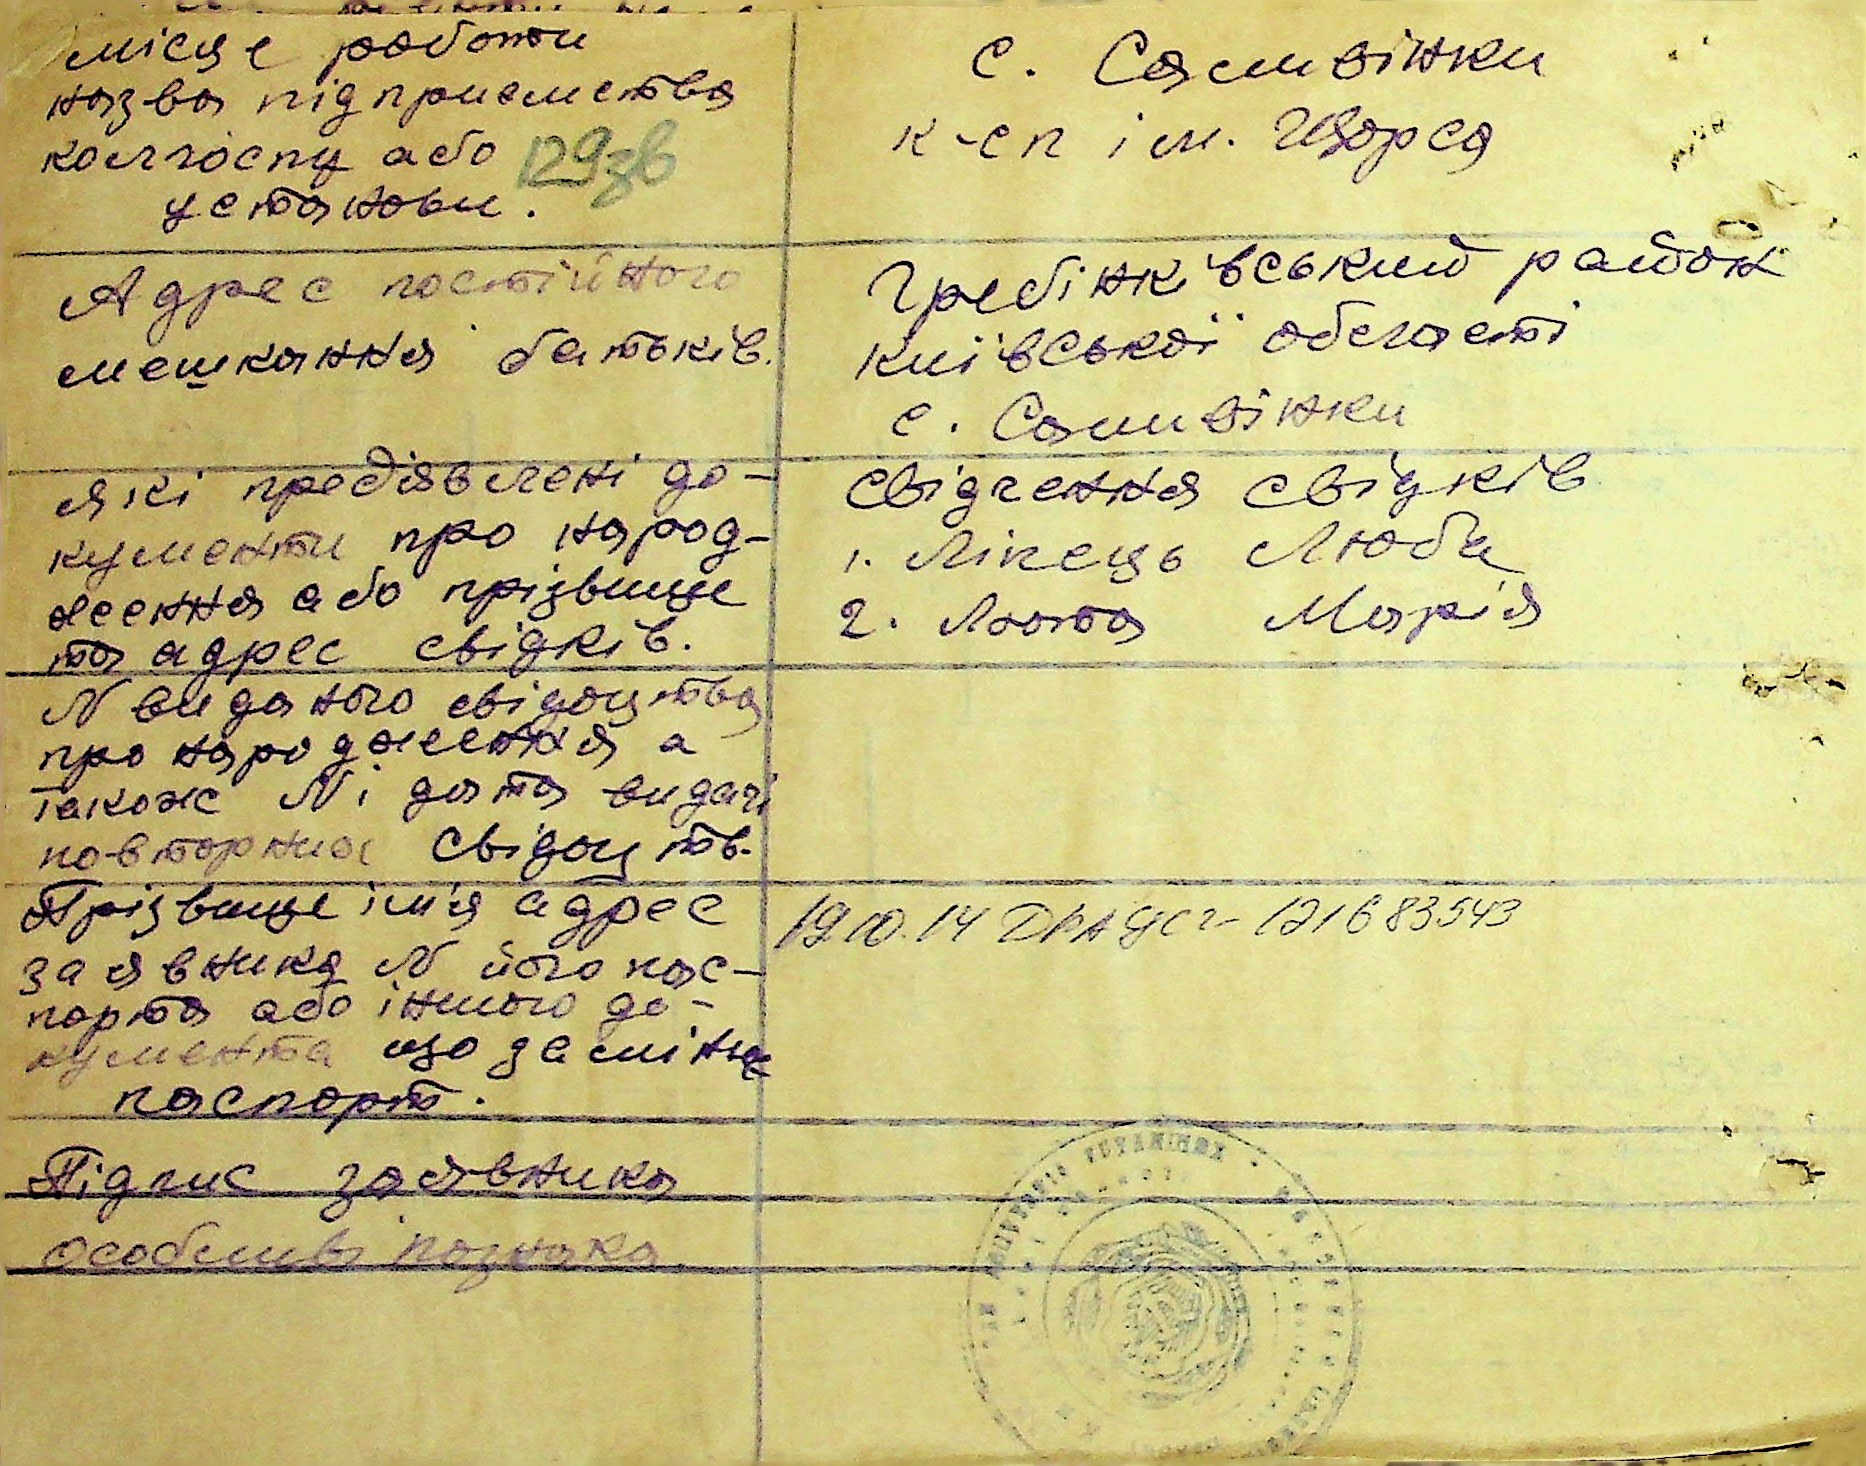 місце роботи
назва підприємства
колгоспу або
установи.
129зв
с. Саливінки
к-сп ім. Щорса
Адрес постійного
мешкання батьків.
Гребінківський район
київської області
с. Саливінки
які пред'явлені до-
кументи про народ-
ження або прізвище
та адрес свідків.
свідчення свідків
1. Ліпець Люба
2. Люта Марія
N виданого свідоцтва
про народження а
також N і дата видачі
повторних свідоцтв.
Прізвище ім'я адрес
заявника N його пас-
порта або іншого до-
кумента що заміняє
паспорт.
19.10.14 ДРАЦСг- 121683543
Підпис заявника
особливі познака